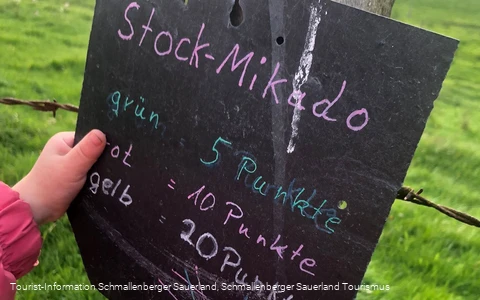 Stock-Mikado
grün 5 Punkte
ot = 10 Punkte
gelb = 20 Punkt
Tourist-Information Schmallenberger Sauerland, Schmallenberger Sauerland Tourismus